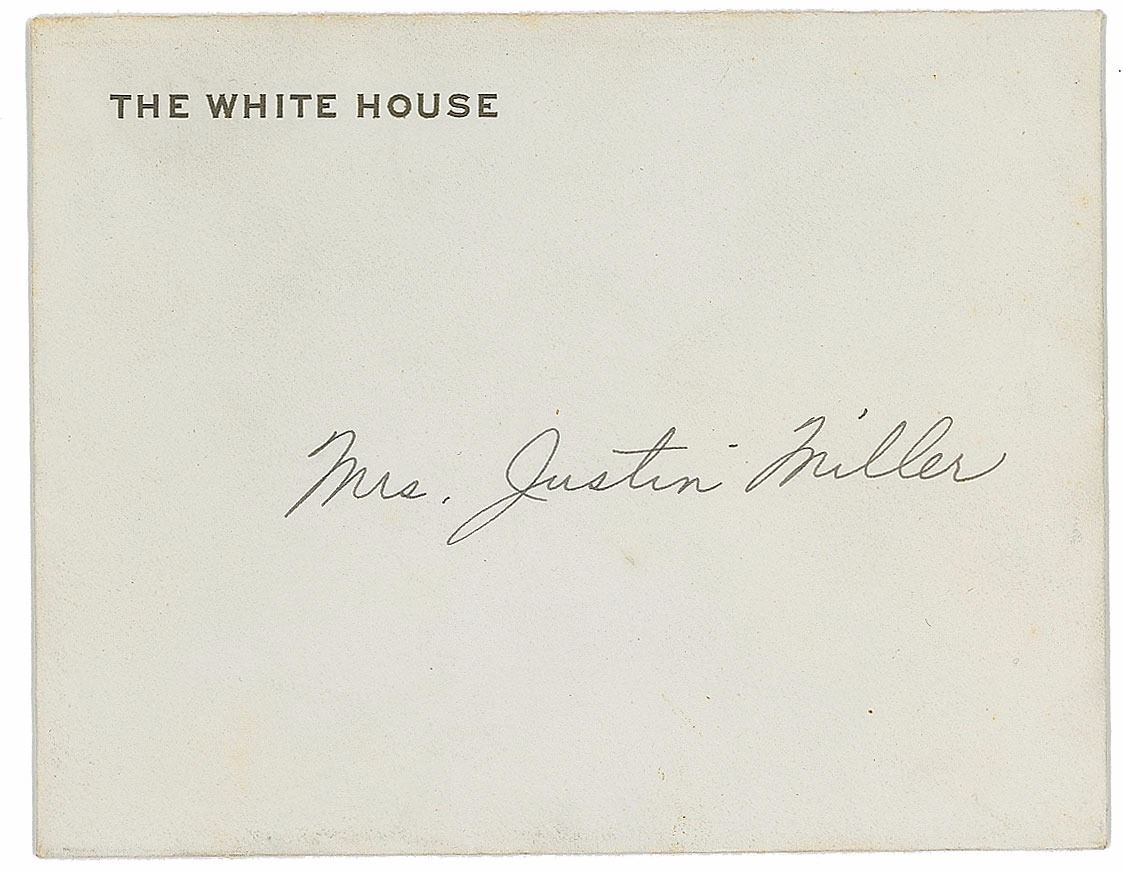 THE WHITE HOUSE
Mrs. Justin Miller